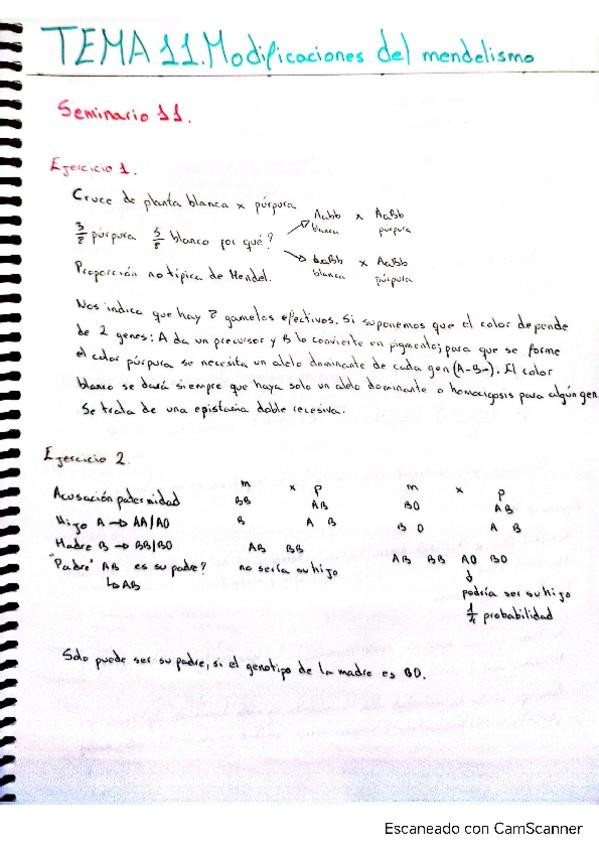 TEMA 11. Modificaciones del mendelismo
Seminario 11.
Ejercicio 1.
Cruce de planta blanca x púrpura
Aabb x AaBb
blanca púrpura
3/8 púrpura 5/8 blanco por qué?
aaBb x AaBb
blanca púrpura
Proporción no típica de Mendel.
Nos indica que hay 8 gametos efectivos. Si suponemos que el color depende
de 2 genes: A da un precursor y B lo convierte en pigmento; para que se forme
el color púrpura se necesita un alelo dominante de cada gen (A-B-). El color
blanco se dará siempre que haya solo un alelo dominante o homocigosis para algún gen
Se trata de una epistasia doble recesiva.
Ejercicio 2.
m x p m x p
Acusación paternidad BB AB BO AB
Hijo A → AA/AO B A B B O A B
Madre B → BB/BO AB BB AB BB AO BO
"Padre" AB es su padre? no sería su hijo ↓
↳ AB podría ser su hijo
1/4 probabilidad
Solo puede ser su padre, si el genotipo de la madre es BO.
Escaneado con CamScanner